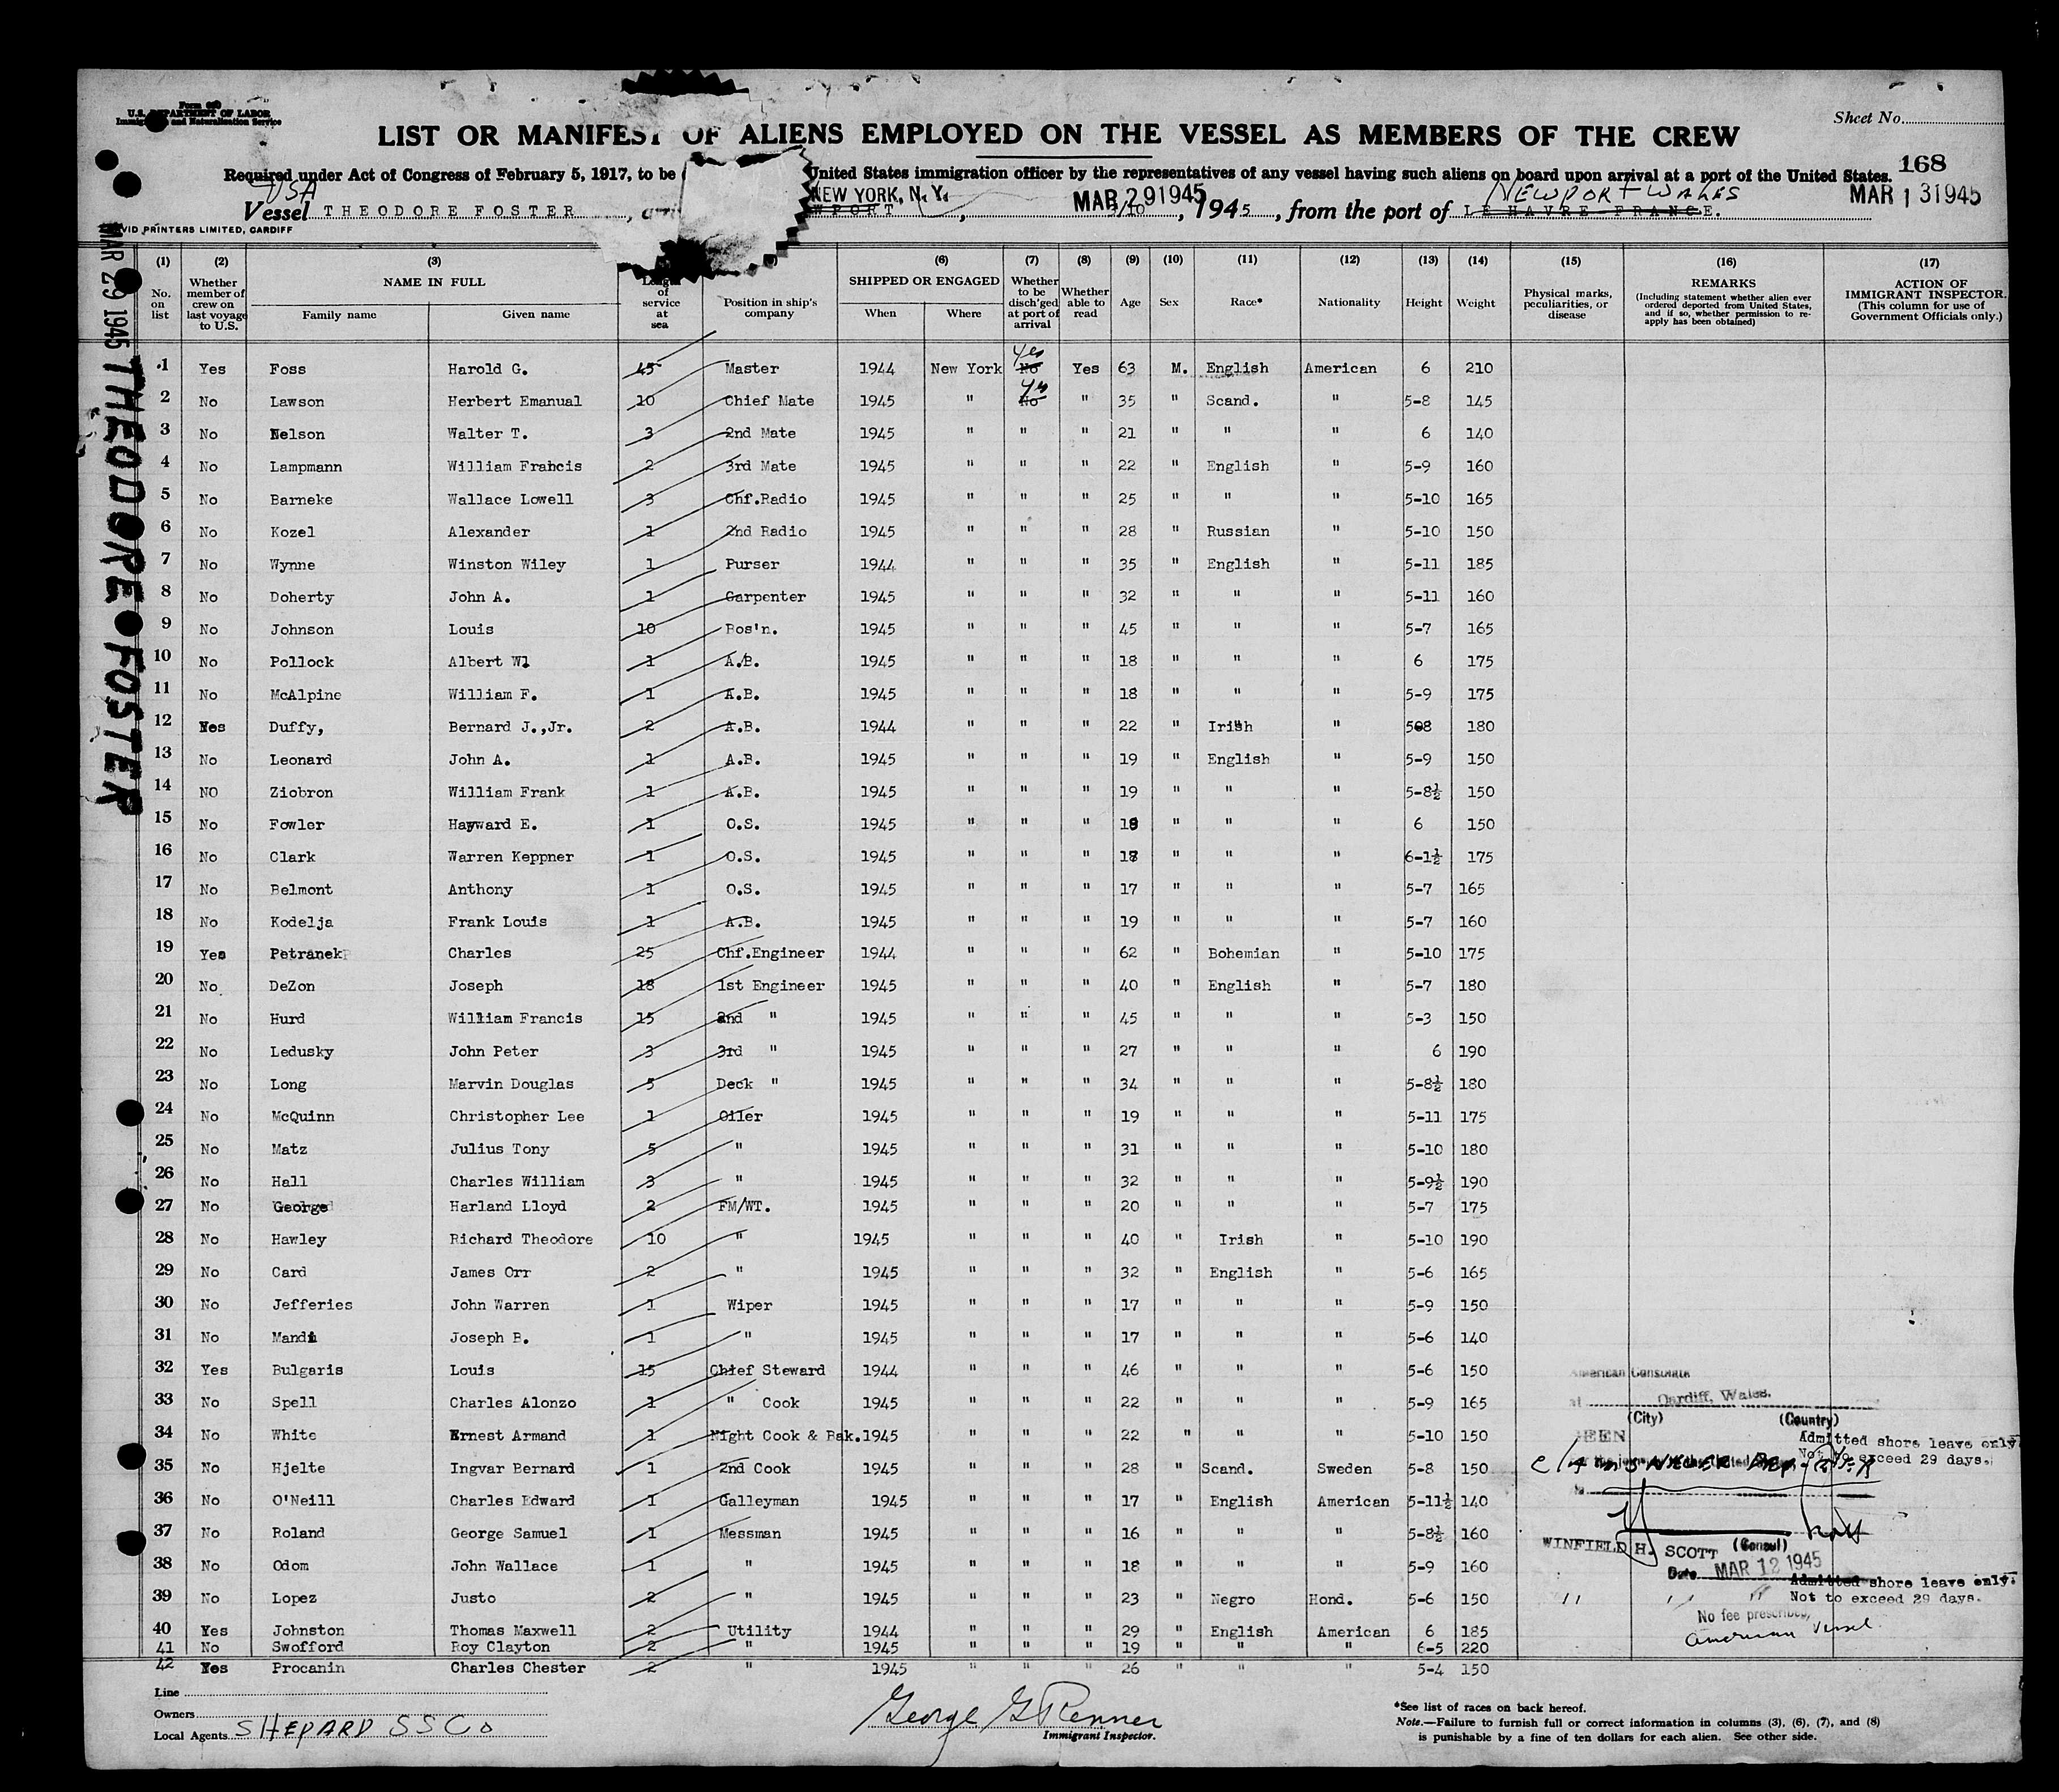 Form 680
U.S. DEPARTMENT OF LABOR
Immigration and Naturalization Service
Sheet No.
LIST OR MANIFEST OF ALIENS EMPLOYED ON THE VESSEL AS MEMBERS OF THE CREW
168
Required under Act of Congress of February 5, 1917, to be United States immigration officer by the representatives of any vessel having such aliens on board upon arrival at a port of the United States.
USA NEW YORK, N. Y. MAR 29 1945 NEWPORT WALES MAR 13 1945
Vessel THEODORE FOSTER, WPORT, 3/10, 1945, from the port of LE HAVRE FRANCE.
VID PRINTERS LIMITED, CARDIFF
MAR 29 1945 THEODORE FOSTER
(1) No. on list (2) Whether member of crew on last voyage to U.S. (3) NAME IN FULL Family name Given name Length of service at sea Position in ship's company (6) SHIPPED OR ENGAGED When Where (7) Whether to be disch'ged at port of arrival (8) Whether able to read (9) Age (10) Sex (11) Race* (12) Nationality (13) Height (14) Weight (15) Physical marks, peculiarities, or disease (16) REMARKS (Including statement whether alien ever ordered deported from United States, and if so, whether permission to re-apply has been obtained) (17) ACTION OF IMMIGRANT INSPECTOR. (This column for use of Government Officials only.)
1 Yes Foss Harold G. 45 Master 1944 New York No Yes Yes 63 M. English American 6 210
2 No Lawson Herbert Emanual 10 Chief Mate 1945 " No Yes " 35 " Scand. " 5-8 145
3 No Nelson Walter T. 3 2nd Mate 1945 " " " 21 " " " 6 140
4 No Lampmann William Frahcis 2 3rd Mate 1945 " " " 22 " English " 5-9 160
5 No Barneke Wallace Lowell 3 Chf.Radio 1945 " " " 25 " " " 5-10 165
6 No Kozel Alexander 1 2nd Radio 1945 " " " 28 " Russian " 5-10 150
7 No Wynne Winston Wiley 1 Purser 1944 " " " 35 " English " 5-11 185
8 No Doherty John A. 1 Carpenter 1945 " " " 32 " " " 5-11 160
9 No Johnson Louis 10 Bos'n. 1945 " " " 45 " " " 5-7 165
10 No Pollock Albert W1 1 A.B. 1945 " " " 18 " " " 6 175
11 No McAlpine William F. 1 A.B. 1945 " " " 18 " " " 5-9 175
12 Yes Duffy, Bernard J.,Jr. 2 A.B. 1944 " " " 22 " Irish " 508 180
13 No Leonard John A. 1 A.B. 1945 " " " 19 " English " 5-9 150
14 NO Ziobron William Frank 1 A.B. 1945 " " " 19 " " " 5-8½ 150
15 No Fowler Hayward E. 1 O.S. 1945 " " " 18 " " " 6 150
16 No Clark Warren Keppner 1 O.S. 1945 " " " 18 " " " 6-1½ 175
17 No Belmont Anthony 1 O.S. 1945 " " " 17 " " " 5-7 165
18 No Kodelja Frank Louis 1 A.B. 1945 " " " 19 " " " 5-7 160
19 Yes Petranek Charles 25 Chf.Engineer 1944 " " " 62 " Bohemian " 5-10 175
20 No DeZon Joseph 18 1st Engineer 1945 " " " 40 " English " 5-7 180
21 No Hurd William Francis 15 2nd " 1945 " " " 45 " " " 5-3 150
22 No Ledusky John Peter 3 3rd " 1945 " " " 27 " " " 6 190
23 No Long Marvin Douglas 5 Deck " 1945 " " " 34 " " " 5-8½ 180
24 No McQuinn Christopher Lee 1 Oiler 1945 " " " 19 " " " 5-11 175
25 No Matz Julius Tony 5 " 1945 " " " 31 " " " 5-10 180
26 No Hall Charles William 3 " 1945 " " " 32 " " " 5-9½ 190
27 No George Harland Lloyd 2 FM/WT. 1945 " " " 20 " " " 5-7 175
28 No Hawley Richard Theodore 10 " 1945 " " " 40 " Irish " 5-10 190
29 No Card James Orr 2 " 1945 " " " 32 " English " 5-6 165
30 No Jefferies John Warren 1 Wiper 1945 " " " 17 " " " 5-9 150
31 No Mandi Joseph B. 1 " 1945 " " " 17 " " " 5-6 140
32 Yes Bulgaris Louis 15 Chief Steward 1944 " " " 46 " " " 5-6 150
33 No Spell Charles Alonzo 1 " Cook 1945 " " " 22 " " " 5-9 165
34 No White Ernest Armand 1 Night Cook & Bak. 1945 " " " 22 " " " 5-10 150
35 No Hjelte Ingvar Bernard 1 2nd Cook 1945 " " " 28 " Scand. Sweden 5-8 150
36 No O'Neill Charles Edward 1 Galleyman 1945 " " " 17 " English American 5-11½ 140
37 No Roland George Samuel 1 Messman 1945 " " " 16 " " " 5-8½ 160
38 No Odom John Wallace 1 " 1945 " " " 18 " " " 5-9 160
39 No Lopez Justo 2 " 1945 " " " 23 " Negro Hond. 5-6 150 " " "
40 Yes Johnston Thomas Maxwell 2 Utility 1944 " " " 29 " English American 6 185
41 No Swofford Roy Clayton 2 " 1945 " " " 19 " " " 6-5 220
42 Yes Procanin Charles Chester 2 " 1945 " " " 26 " " " 5-4 150
American Consulate
at Cardiff, Wales.
(City) (Country)
SEEN
Admitted shore leave only
Not to exceed 29 days.
WINFIELD H. SCOTT (Consul)
Date MAR 12 1945
Admitted shore leave only.
Not to exceed 29 days.
No fee prescribed,
American Vessel
Line
Owners
Local Agents SHEPARD SS Co
George G Renner
Immigrant Inspector.
*See list of races on back hereof.
Note.—Failure to furnish full or correct information in columns (3), (6), (7), and (8)
is punishable by a fine of ten dollars for each alien. See other side.